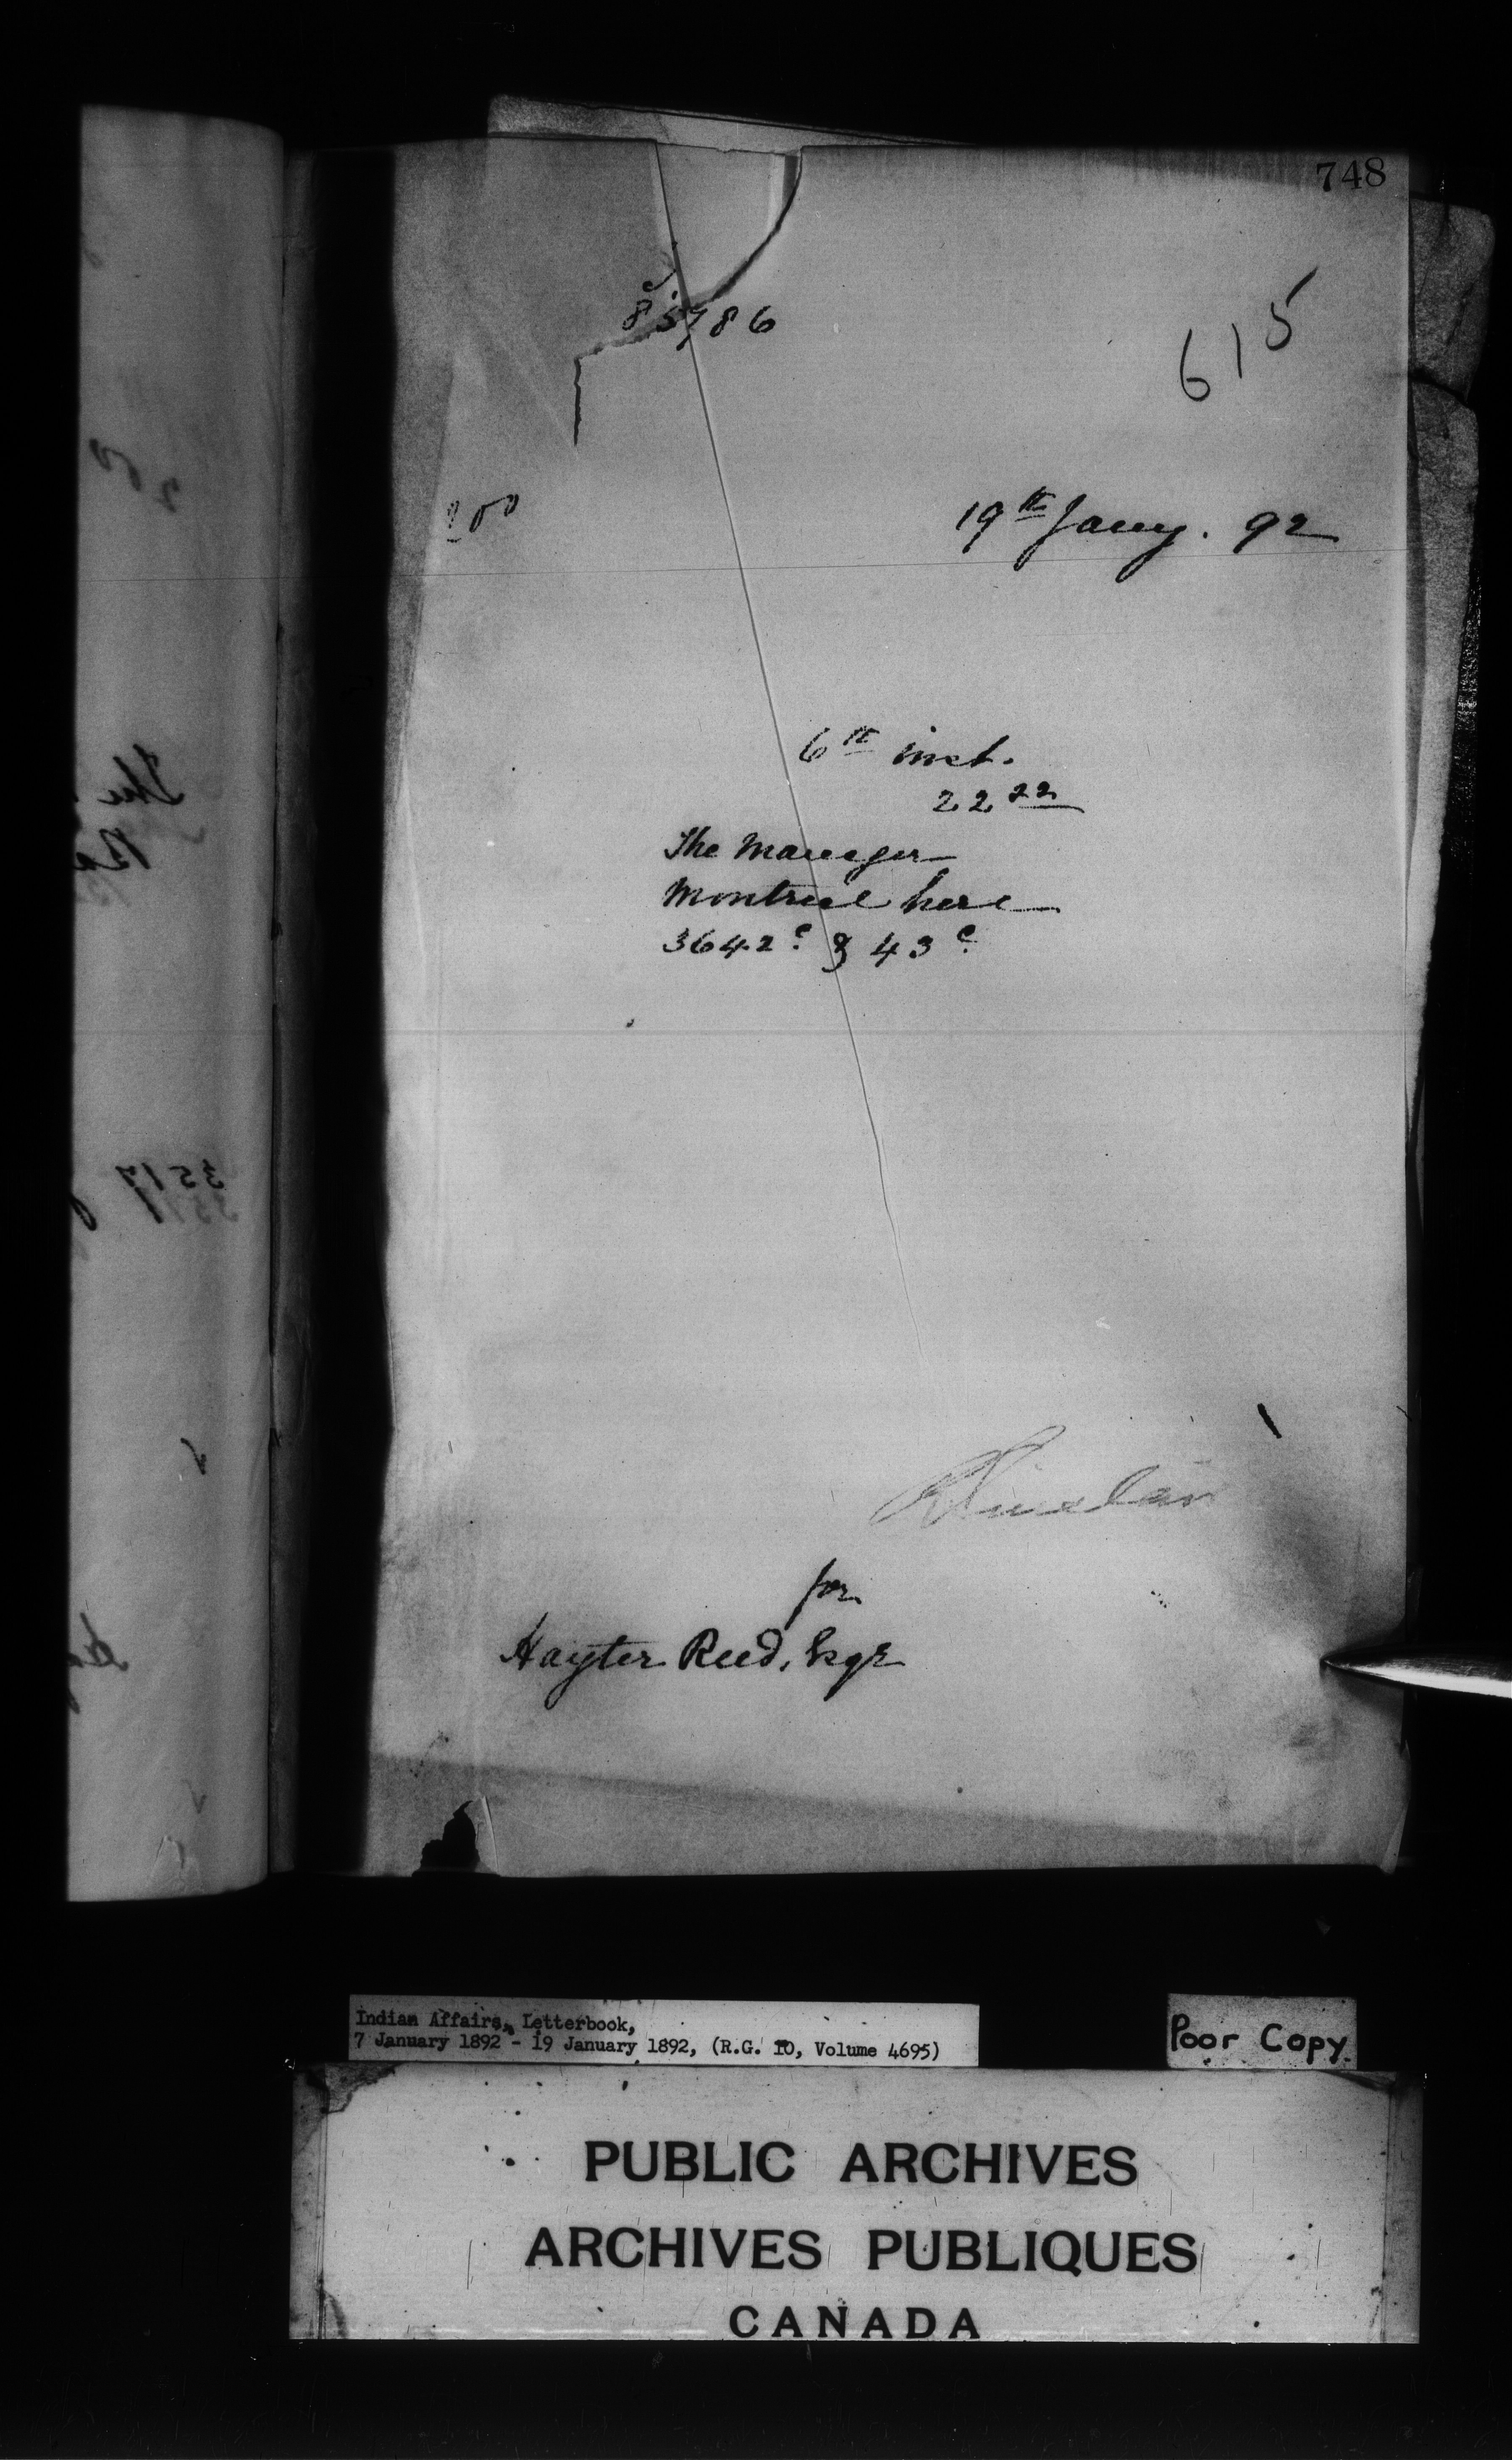 748
85786
615
200
19th Jany. 92
6th inst.
22 22
The Manager
Montreal here
3642c & 43c
R Sinclair
for
Hayter Reed, Esqr
3517
Indian Affairs, Letterbook,
7 January 1892 - 19 January 1892, (R.G. 10, Volume 4695)
Poor Copy.
PUBLIC ARCHIVES
ARCHIVES PUBLIQUES
CANADA